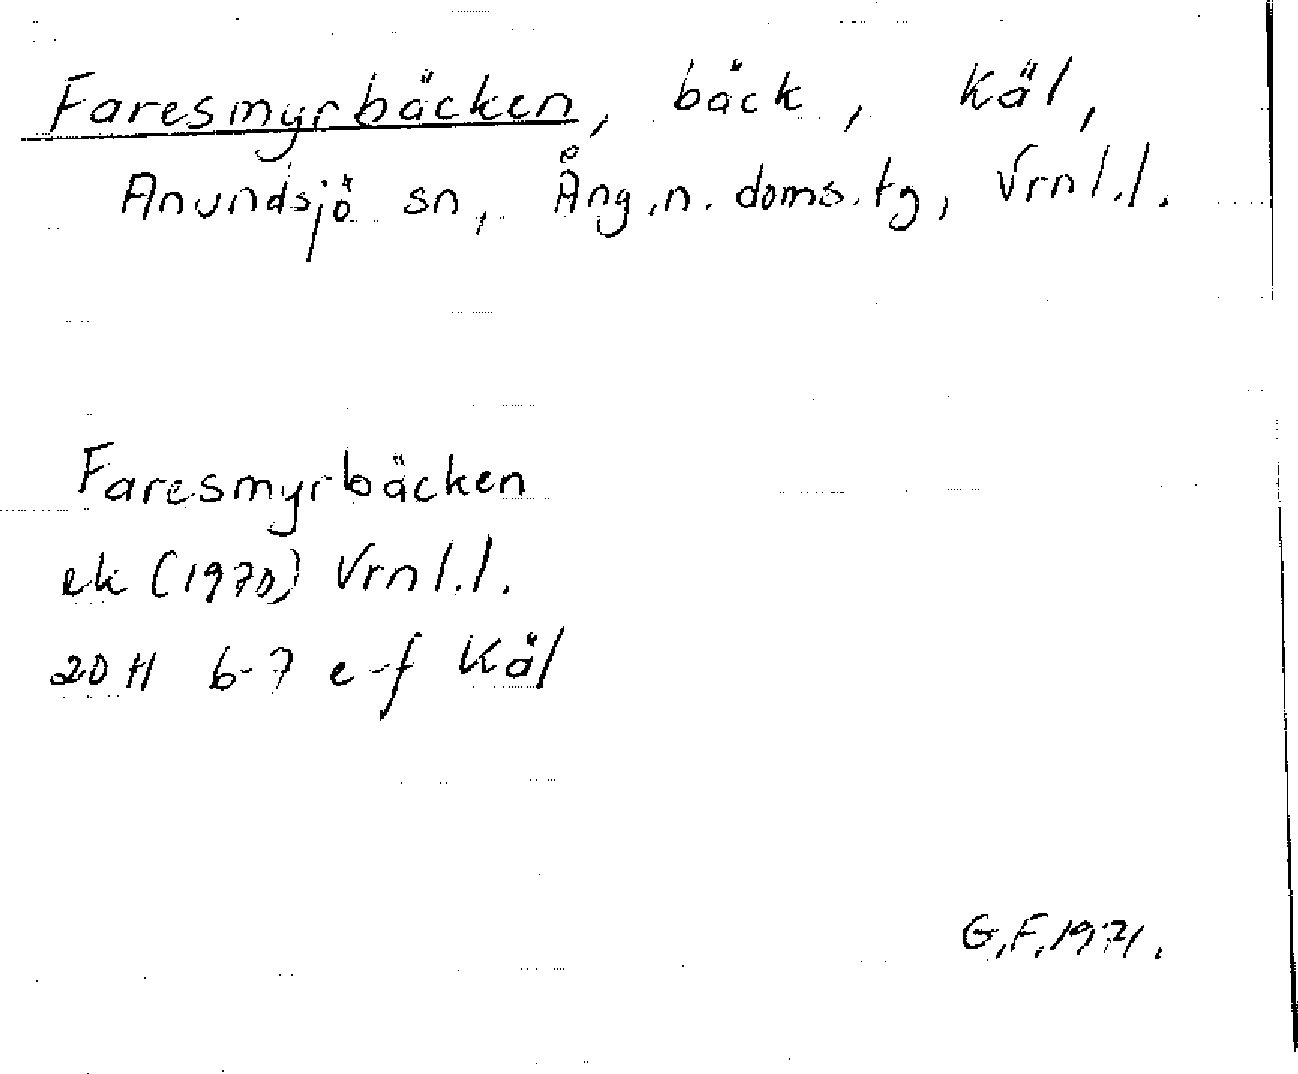 Faresmyrbäcken, bäck, Käl,
Anundsjö sn, Ång.n. doms.tg, Vrnl.l.
Faresmyrbäcken
ek (1970) Vrnl.l.
20 H 6-7 e-f Käl
G.F. 1971.